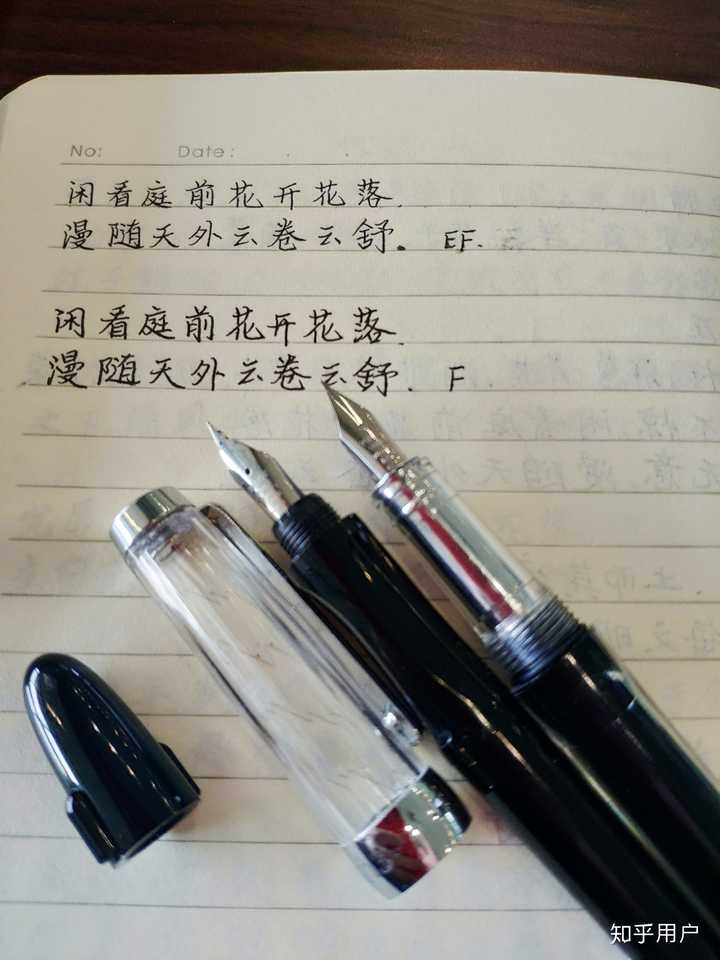 No: Date:
闲看庭前花开花落.
漫随天外云卷云舒。 EF.
闲看庭前花开花落.
漫随天外云卷云舒. F
知乎用户